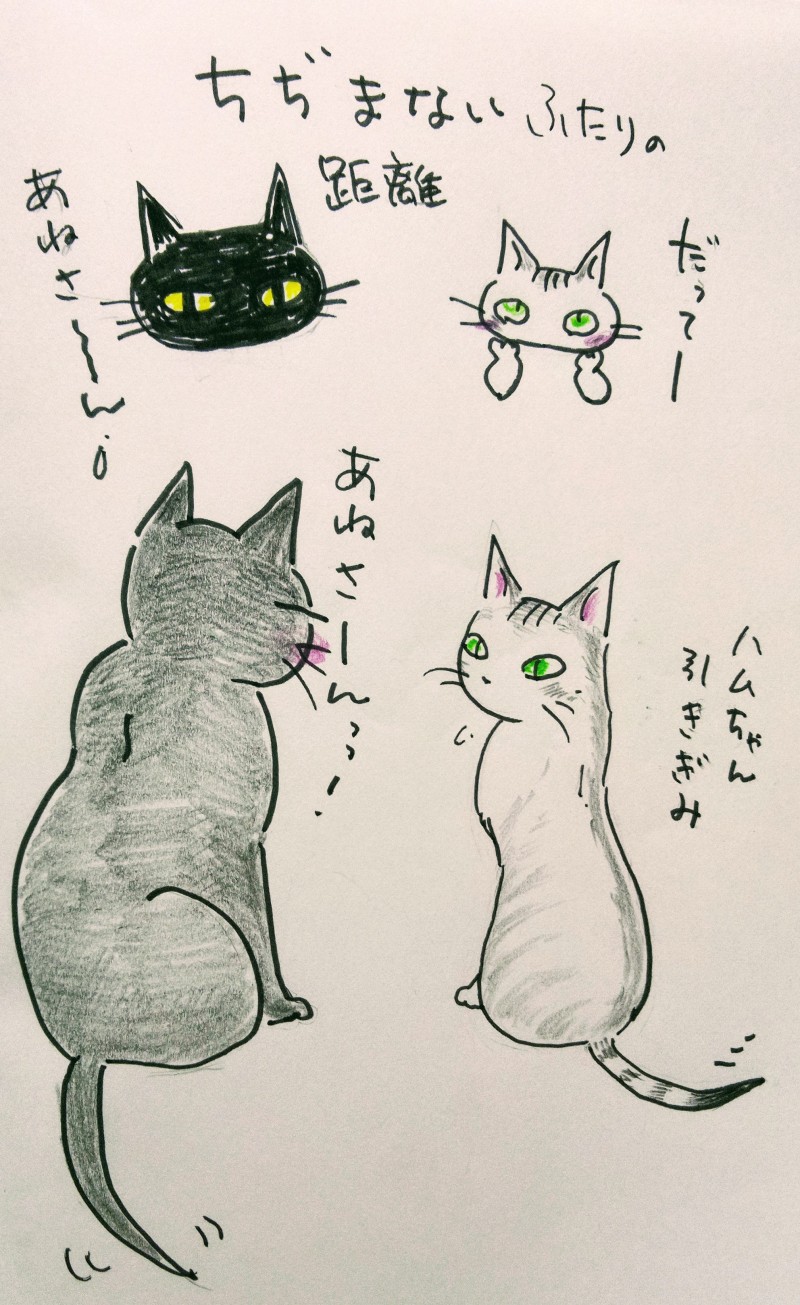 ちぢまないふたりの
距離
あねさ〜〜ん!
だってー
あねさーんっっ!
ハムちゃん
引きぎみ